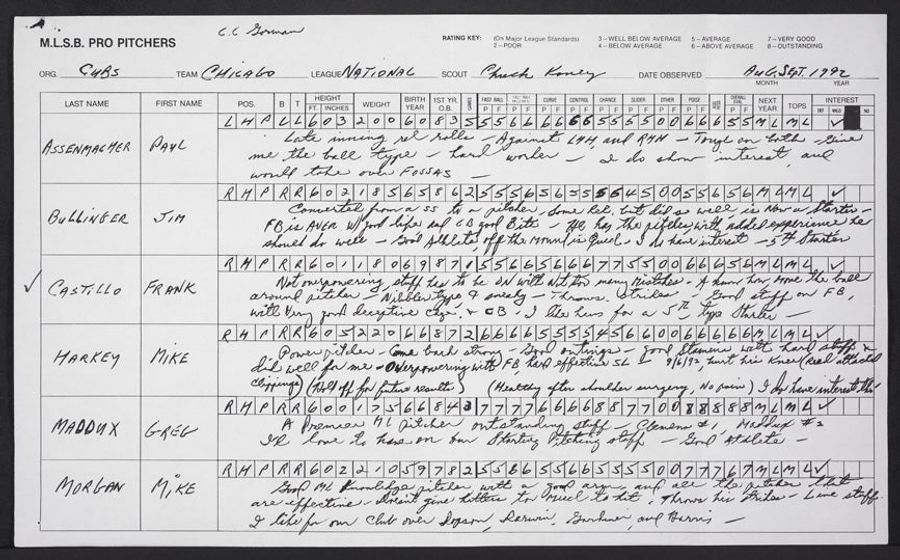 C.C Gorman
M.L.S.B. PRO PITCHERS
RATING KEY: (On Major League Standards) 3 – WELL BELOW AVERAGE 5 – AVERAGE 7 – VERY GOOD
2 – POOR 4 – BELOW AVERAGE 6 – ABOVE AVERAGE 8 – OUTSTANDING
ORG. CUBS TEAM CHICAGO LEAGUE NATIONAL SCOUT Chuck Koney DATE OBSERVED Aug, Sept. 1992
MONTH YEAR
LAST NAME FIRST NAME POS. B T HEIGHT WEIGHT BIRTH YEAR 1ST YR. O.B. GAMES FAST BALL CURVE CONTROL CHANGE SLIDER OTHER POISE NEXT YEAR TOPS INTEREST
FT. INCHES P F P F P F P F P F P F P F
LHP L L 6 03 200 60 83
ASSENMACHER PAUL Late inning rel rolls – Against LHH and RHH – Tough on both – Give
me the ball type – hard worker – I do show interest, and
would take over FOSSAS –
RHP R R 6 02 185 65 86
BULLINGER JIM Converted from a SS to a pitcher, some Rel. but did so well, is now a starter –
FB is AVER w/ good life and CB good Bite – He has the pitches with added experience he
should do well – Good Athlete, off the mound is quick – I do have interest – 5th Starter
RHP R R 6 01 180 69 87
CASTILLO FRANK Not overpowering, stuff has to be on with not too many mistakes – A know how, move the ball
around pitcher – Nibbler type & sneaky – Throws strikes – Good stuff on FB,
with very good deceptive chge. & CB – I like him for a 5th type starter –
RHP R R 6 05 220 66 87
HARKEY MIKE Power pitcher – Come back strong – Good outings – good stamina with hard stuff &
did well for me – Overpowering with FB hard effective SL – 9/6/92, hurt his Knee (Read attached
clippings) (Hold off for future results) (Healthy after shoulder surgery, No pain) I do have interest tho'
RHP R R 6 00 175 66 84
MADDUX GREG A Premier ML pitcher outstanding stuff – Clemens #1, Maddux #2
I'd love to have on our Starting Pitching staff – Good Athlete –
RHP R R 6 02 210 59 78
MORGAN MIKE Good ML Knowledge pitcher with a good arm, and all the pitches that
are effective – doesn't give hitters too much to hit. Throws his strikes – Live stuff
I like for our club over Dopson, Darwin, Gardiner, and Harris –